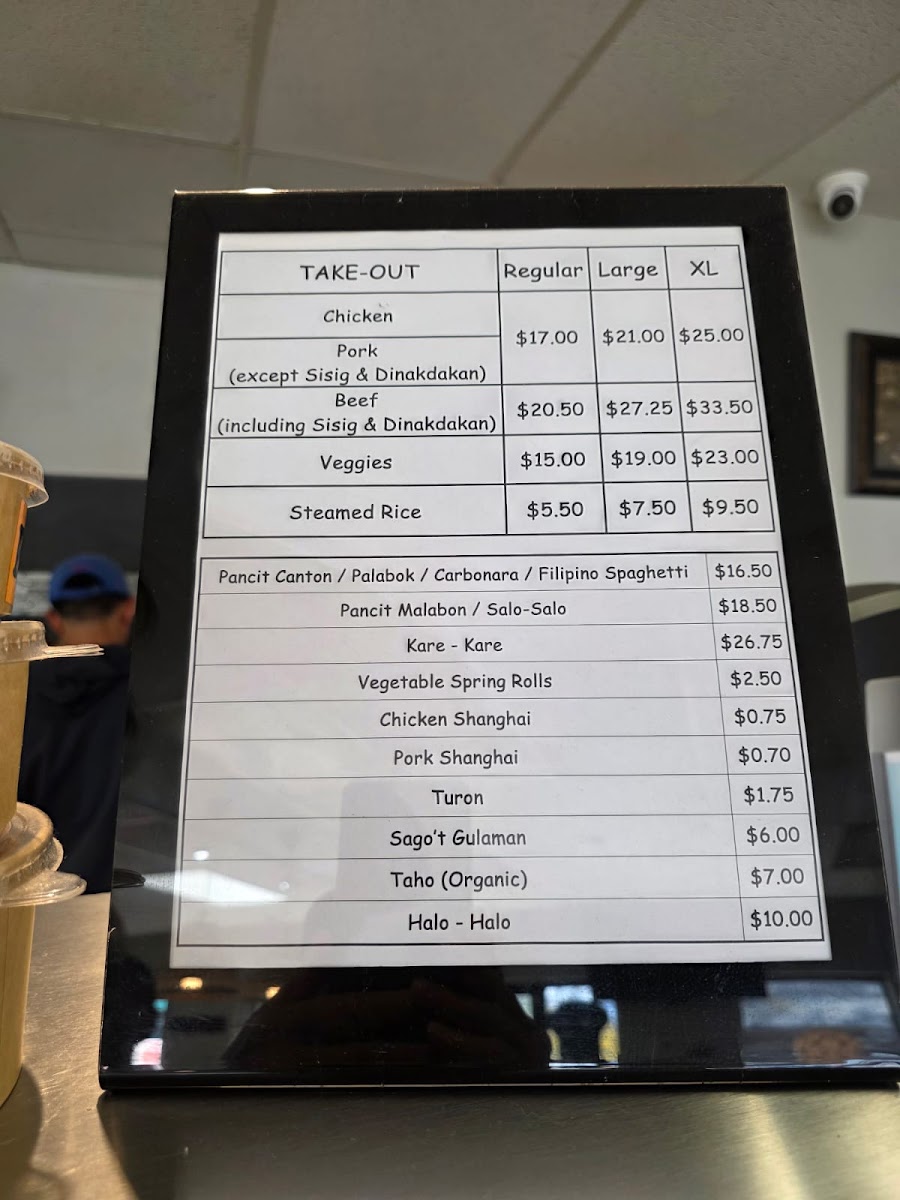 TAKE-OUT Regular Large XL
Chicken
$17.00 $21.00 $25.00
Pork
(except Sisig & Dinakdakan)
Beef
(including Sisig & Dinakdakan)
$20.50 $27.25 $33.50
Veggies $15.00 $19.00 $23.00
Steamed Rice $5.50 $7.50 $9.50
Pancit Canton / Palabok / Carbonara / Filipino Spaghetti $16.50
Pancit Malabon / Salo-Salo $18.50
Kare - Kare $26.75
Vegetable Spring Rolls $2.50
Chicken Shanghai $0.75
Pork Shanghai $0.70
Turon $1.75
Sago't Gulaman $6.00
Taho (Organic) $7.00
Halo - Halo $10.00